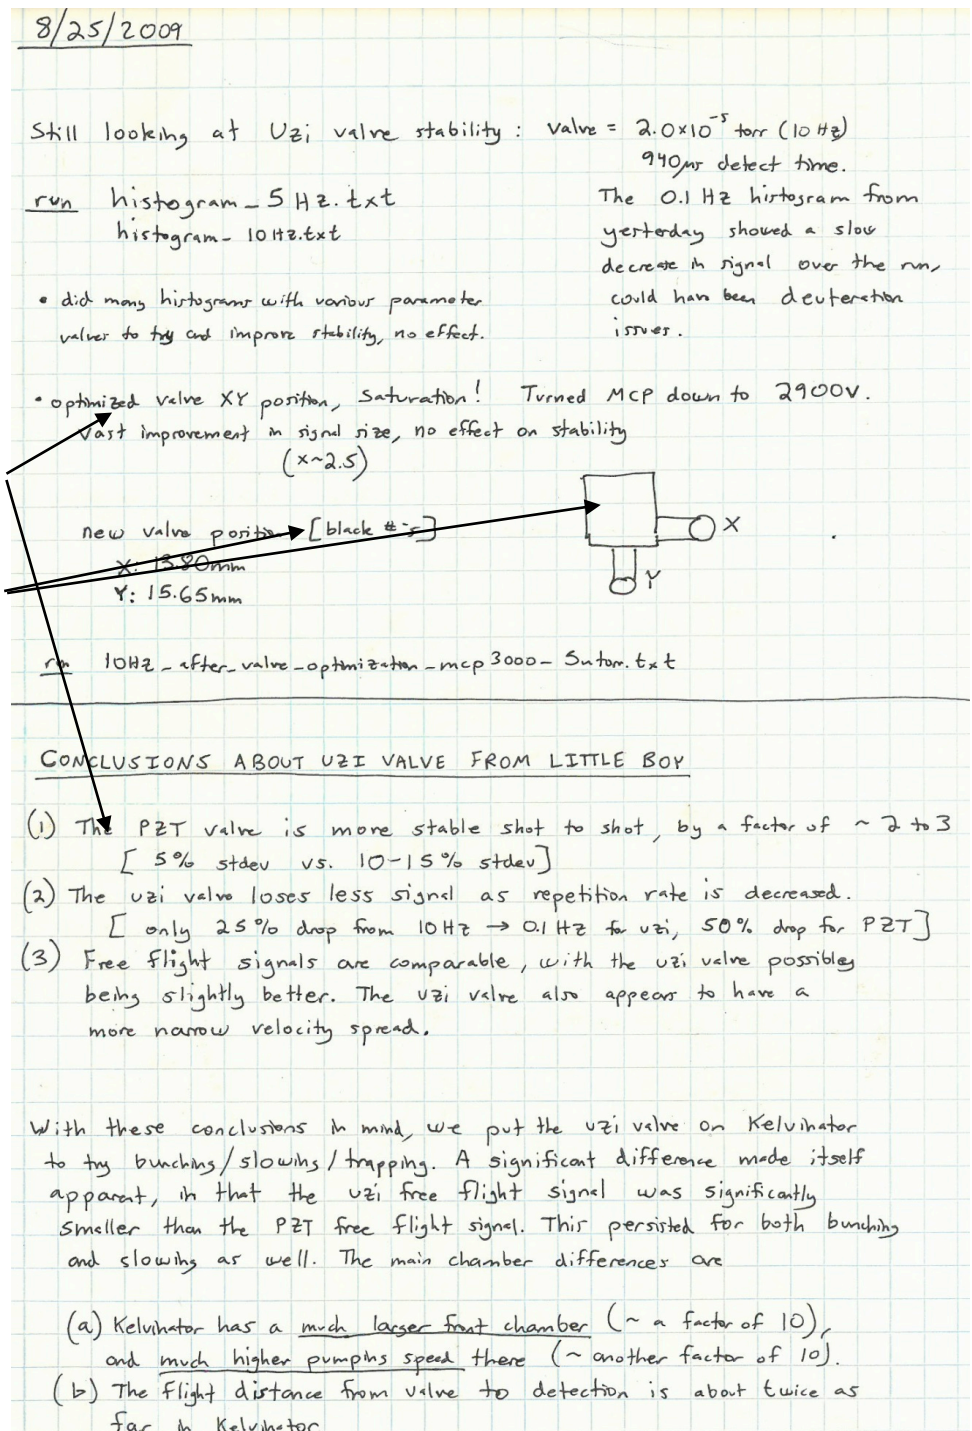 8/25/2009
Still looking at Uzi valve stability : valve = 2.0x10⁻⁵ torr (10 Hz)
940μs detect time.
run histogram_5 Hz.txt
histogram_10Hz.txt
The 0.1 Hz histogram from
yesterday showed a slow
decrease in signal over the run,
could have been deuteration
issues.
• did many histograms with various parameter
values to try and improve stability, no effect.
• optimized valve XY position, Saturation! Turned MCP down to 2900V.
Vast improvement in signal size, no effect on stability
(x~2.5)
new valve position [black #'s]
X: 13.80mm
Y: 15.65mm
X
Y
run 10Hz_after_valve_optimization_mcp3000_5utorr.txt
CONCLUSIONS ABOUT UZI VALVE FROM LITTLE BOY
(1) The PZT valve is more stable shot to shot, by a factor of ~ 2 to 3
[ 5% stdev vs. 10-15% stdev]
(2) The uzi valve loses less signal as repetition rate is decreased.
[ only 25% drop from 10Hz → 0.1 Hz for uzi, 50% drop for PZT]
(3) Free flight signals are comparable, with the uzi valve possibley
being slightly better. The uzi valve also appears to have a
more narrow velocity spread.
With these conclusions in mind, we put the uzi valve on Kelvinator
to try bunching/slowing/trapping. A significant difference made itself
apparent, in that the uzi free flight signal was significantly
smaller than the PZT free flight signal. This persisted for both bunching
and slowing as well. The main chamber differences are
(a) Kelvinator has a much larger front chamber (~ a factor of 10),
and much higher pumping speed there (~another factor of 10).
(b) The flight distance from valve to detection is about twice as
far in Kelvinator